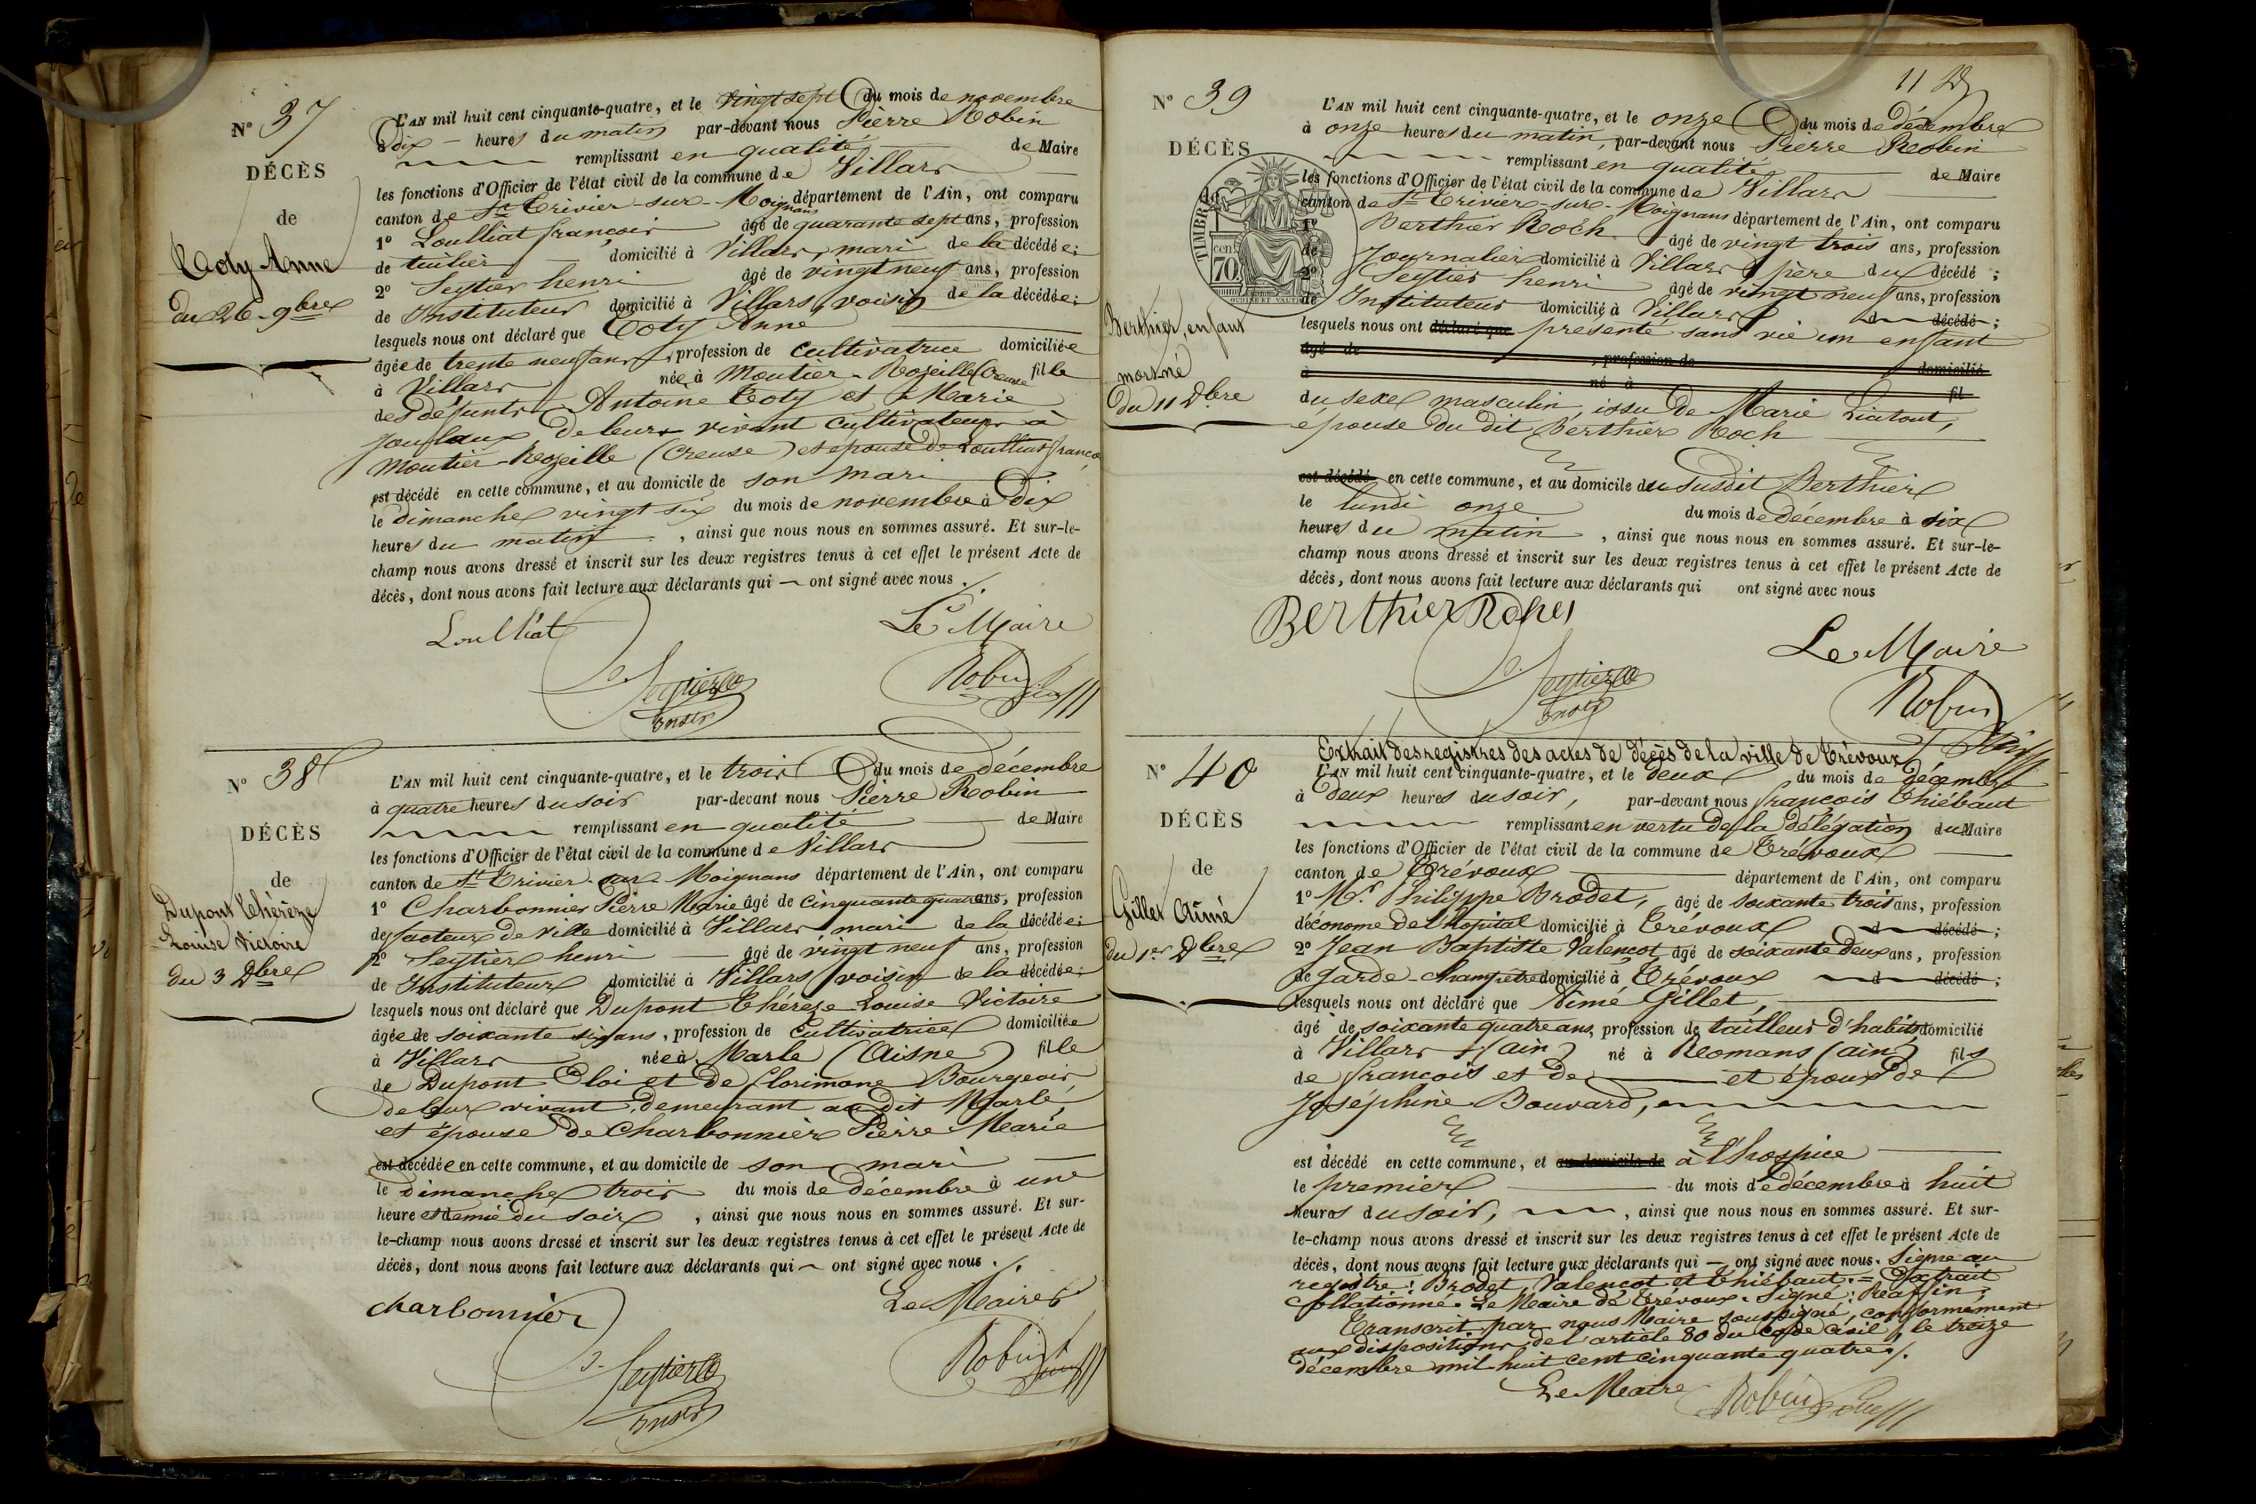 N° 37
DÉCÈS
de
Coty Anne
du 26 9bre
L'AN mil huit cent cinquante-quatre, et le vingt sept du mois de novembre
à dix heures du matin par-devant nous Pierre Robin
remplissant en qualité de Maire
les fonctions d'Officier de l'état civil de la commune de Villars
canton de St Trivier-sur-Moignans département de l'Ain, ont comparu
1° Loulliat françois âgé de quarante sept ans, profession
de tuilier domicilié à Villars, mari de la décédée;
2° Seytier henri âgé de vingt neuf ans, profession
de Instituteur domicilié à Villars, voisin de la décédée;
lesquels nous ont déclaré que Coty Anne
âgée de trente neuf ans, profession de Cultivatrice domiciliée
à Villars née à Moutier-Rozeille (Creuse) fille
des défunts Antoine Coty et Marie
de leur vivant cultivateurs à
Moutier-Rozeille (Creuse) et épouse de Loulliat franço
est décédé en cette commune, et au domicile de son mari
le dimanche vingt six du mois de novembre à Dix
heures du matin, ainsi que nous nous en sommes assuré. Et sur-le-
champ nous avons dressé et inscrit sur les deux registres tenus à cet effet le présent Acte de
décès, dont nous avons fait lecture aux déclarants qui ont signé avec nous.
Loulliat
Le Maire
Seytier
Robin
N° 38
DÉCÈS
de
Dupont Thérèze
Louise Victoire
du 3 Dbre
L'AN mil huit cent cinquante-quatre, et le trois du mois de décembre
à quatre heures du soir par-devant nous Pierre Robin
remplissant en qualité de Maire
les fonctions d'Officier de l'état civil de la commune de Villars
canton de St Trivier-sur-Moignans département de l'Ain, ont comparu
1° Charbonnier Pierre Marie âgé de cinquante quatre ans, profession
de facteur de ville domicilié à Villars mari de la décédée;
2° Seytier henri âgé de vingt neuf ans, profession
de Instituteur domicilié à Villars voisin de la décédée;
lesquels nous ont déclaré que Dupont Thérèze Louise Victoire
âgée de soixante six ans, profession de Cultivatrice domiciliée
à Villars née à Marle (Aisne) fille
de Dupont Eloi et de florimone Bourgeois
de leur vivant demeurant au dit Marle,
et épouse de Charbonnier Pierre Marie
est décédée en cette commune, et au domicile de son mari
le dimanche trois du mois de décembre à une
heure et demie du soir, ainsi que nous nous en sommes assuré. Et sur-
le-champ nous avons dressé et inscrit sur les deux registres tenus à cet effet le présent Acte de
décès, dont nous avons fait lecture aux déclarants qui ont signé avec nous.
charbonnier
Le Maire
Seytier
Robin
11
N° 39
DÉCÈS
de
Berthier, enfant
mort né
du 11 Dbre
TIMBRE
70
L'AN mil huit cent cinquante-quatre, et le onze du mois de décembre
à onze heures du matin, par-devant nous Pierre Robin
remplissant en qualité de Maire
les fonctions d'Officier de l'état civil de la commune de Villars
canton de St Trivier-sur-Moignans département de l'Ain, ont comparu
1° Berthier Roch âgé de vingt trois ans, profession
de Journalier domicilié à Villars père du décédé;
2° Seytier henri âgé de vingt neuf ans, profession
de Instituteur domicilié à Villars d décédé;
lesquels nous ont déclaré que présenté sans vie un enfant
âgé de, profession de domicilié
à né à fil
du sexe masculin, issu de Marie Liatout,
épouse du dit Berthier Roch
est décédé en cette commune, et au domicile du susdit Berthier
le lundi onze du mois de décembre à six
heures du matin, ainsi que nous nous en sommes assuré. Et sur-le-
champ nous avons dressé et inscrit sur les deux registres tenus à cet effet le présent Acte de
décès, dont nous avons fait lecture aux déclarants qui ont signé avec nous
Berthier
Le Maire
Seytier
Robin
Extrait des registres des actes de décès de la ville de Trévoux
N° 40
DÉCÈS
de
Gillet Aimé
du 1er Dbre
L'AN mil huit cent cinquante-quatre, et le deux du mois de décembre
à deux heures du soir, par-devant nous françois Thiébaut
remplissant en vertu de la délégation du Maire
les fonctions d'Officier de l'état civil de la commune de Trévoux
canton de Trévoux département de l'Ain, ont comparu
1° Mr. Philippe Brodet, âgé de soixante trois ans, profession
d'économe de l'hopital domicilié à Trévoux d décédé;
2° Jean Baptiste Valençot âgé de soixante deux ans, profession
de garde-champetre domicilié à Trévoux d décédé;
lesquels nous ont déclaré que Aimé Gillet,
âgé de soixante quatre ans, profession de tailleur d'habits, domicilié
à Villars (ain) né à Romans (ain) fils
de françois et de et époux de
Joséphine Bouvard,
est décédé en cette commune, et au domicile de à l'hospice
le premier du mois de décembre à huit
heures du soir, ainsi que nous nous en sommes assuré. Et sur-
le-champ nous avons dressé et inscrit sur les deux registres tenus à cet effet le présent Acte de
décès, dont nous avons fait lecture aux déclarants qui ont signé avec nous. Signé au
registre: Brodet, Valençot et Thiébaut. = Extrait
Collationné. Le Maire de Trévoux. Signé: Raffin;
Transcrit par nous Maire soussigné, conformément
aux dispositions de l'article 80 du code civil, le treize
décembre mil huit cent cinquante quatre.
Le Maire Robin